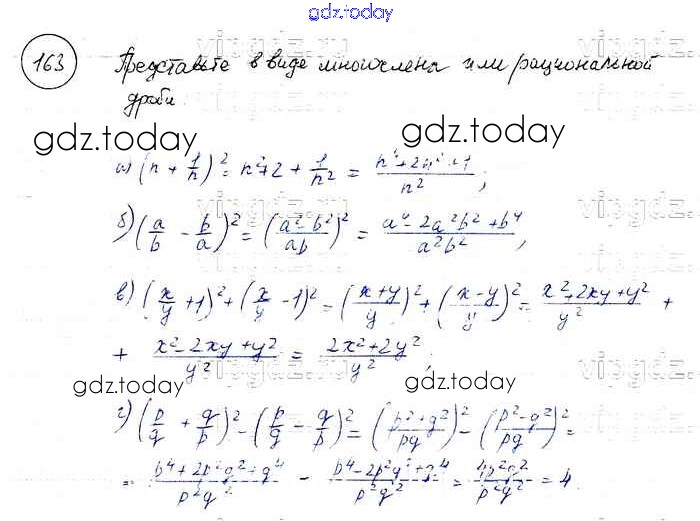 gdz.today
163 Представьте в виде многочлена или рациональной
дроби:
gdz.today gdz.today
а) (n + 1/n)² = n²+2 + 1/n² = (n⁴+2n²+1)/n²;
б) (a/b - b/a)² = ((a²-b²)/ab)² = (a⁴-2a²b²+b⁴)/a²b²;
в) (x/y +1)² + (x/y -1)² = ((x+y)/y)² + ((x-y)/y)² = (x²+2xy+y²)/y² +
+ (x²-2xy+y²)/y² = (2x²+2y²)/y²;
gdz.today gdz.today
г) (p/q + q/p)² - (p/q - q/p)² = ((p²+q²)/pq)² - ((p²-q²)/pq)² =
= (p⁴+2p²q²+q⁴)/p²q² - (p⁴-2p²q²+q⁴)/p²q² = 4p²q²/p²q² = 4
gdz.today